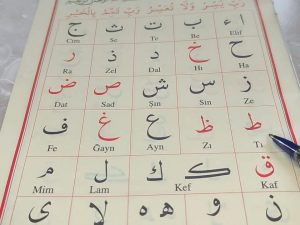 رَبِّ يَسِّرْ وَلَا تُعَسِّرْ رَبِّ تَمِّمْ بِالْخَيْرِ
ا ء ب ت ث ج
Elif Be Te Se Cim
ح خ د ذ ر
Ha Hı Dal Zel Ra
ز س ش ص ض
Ze Sin Şın Sad Dat
ط ظ ع غ ف
Tı Zı Ayn Ğayn Fe
ق ك ك ل م
Kaf Kef Lam Mim
ن و ه ه لا ى